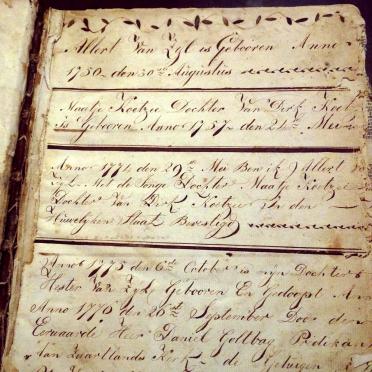 Albert Van Zyl is Gebooren Anno
1750 den 30ste Augustus
Maatje Koetzee Dochter Van Dirk Koet
Is Gebooren Anno 1757 den 21ste
Anno 1774 den 29ste Mei Ben ik Albert
Zyl Met de Jonge Dochter Maatje Koetzee
Dochter Van Dirk Koetzee In den
Huwelyken Staat Bevestigd
Anno 1775 den 6de October is myn Dochter
Hester Van Zyl Gebooren En Gedoopt An
Anno 1776 den 26ste September Door den
Eerwaarde Heer Daniel Goltbag Predikan
Van Zwartlands Kerk de Getuigen